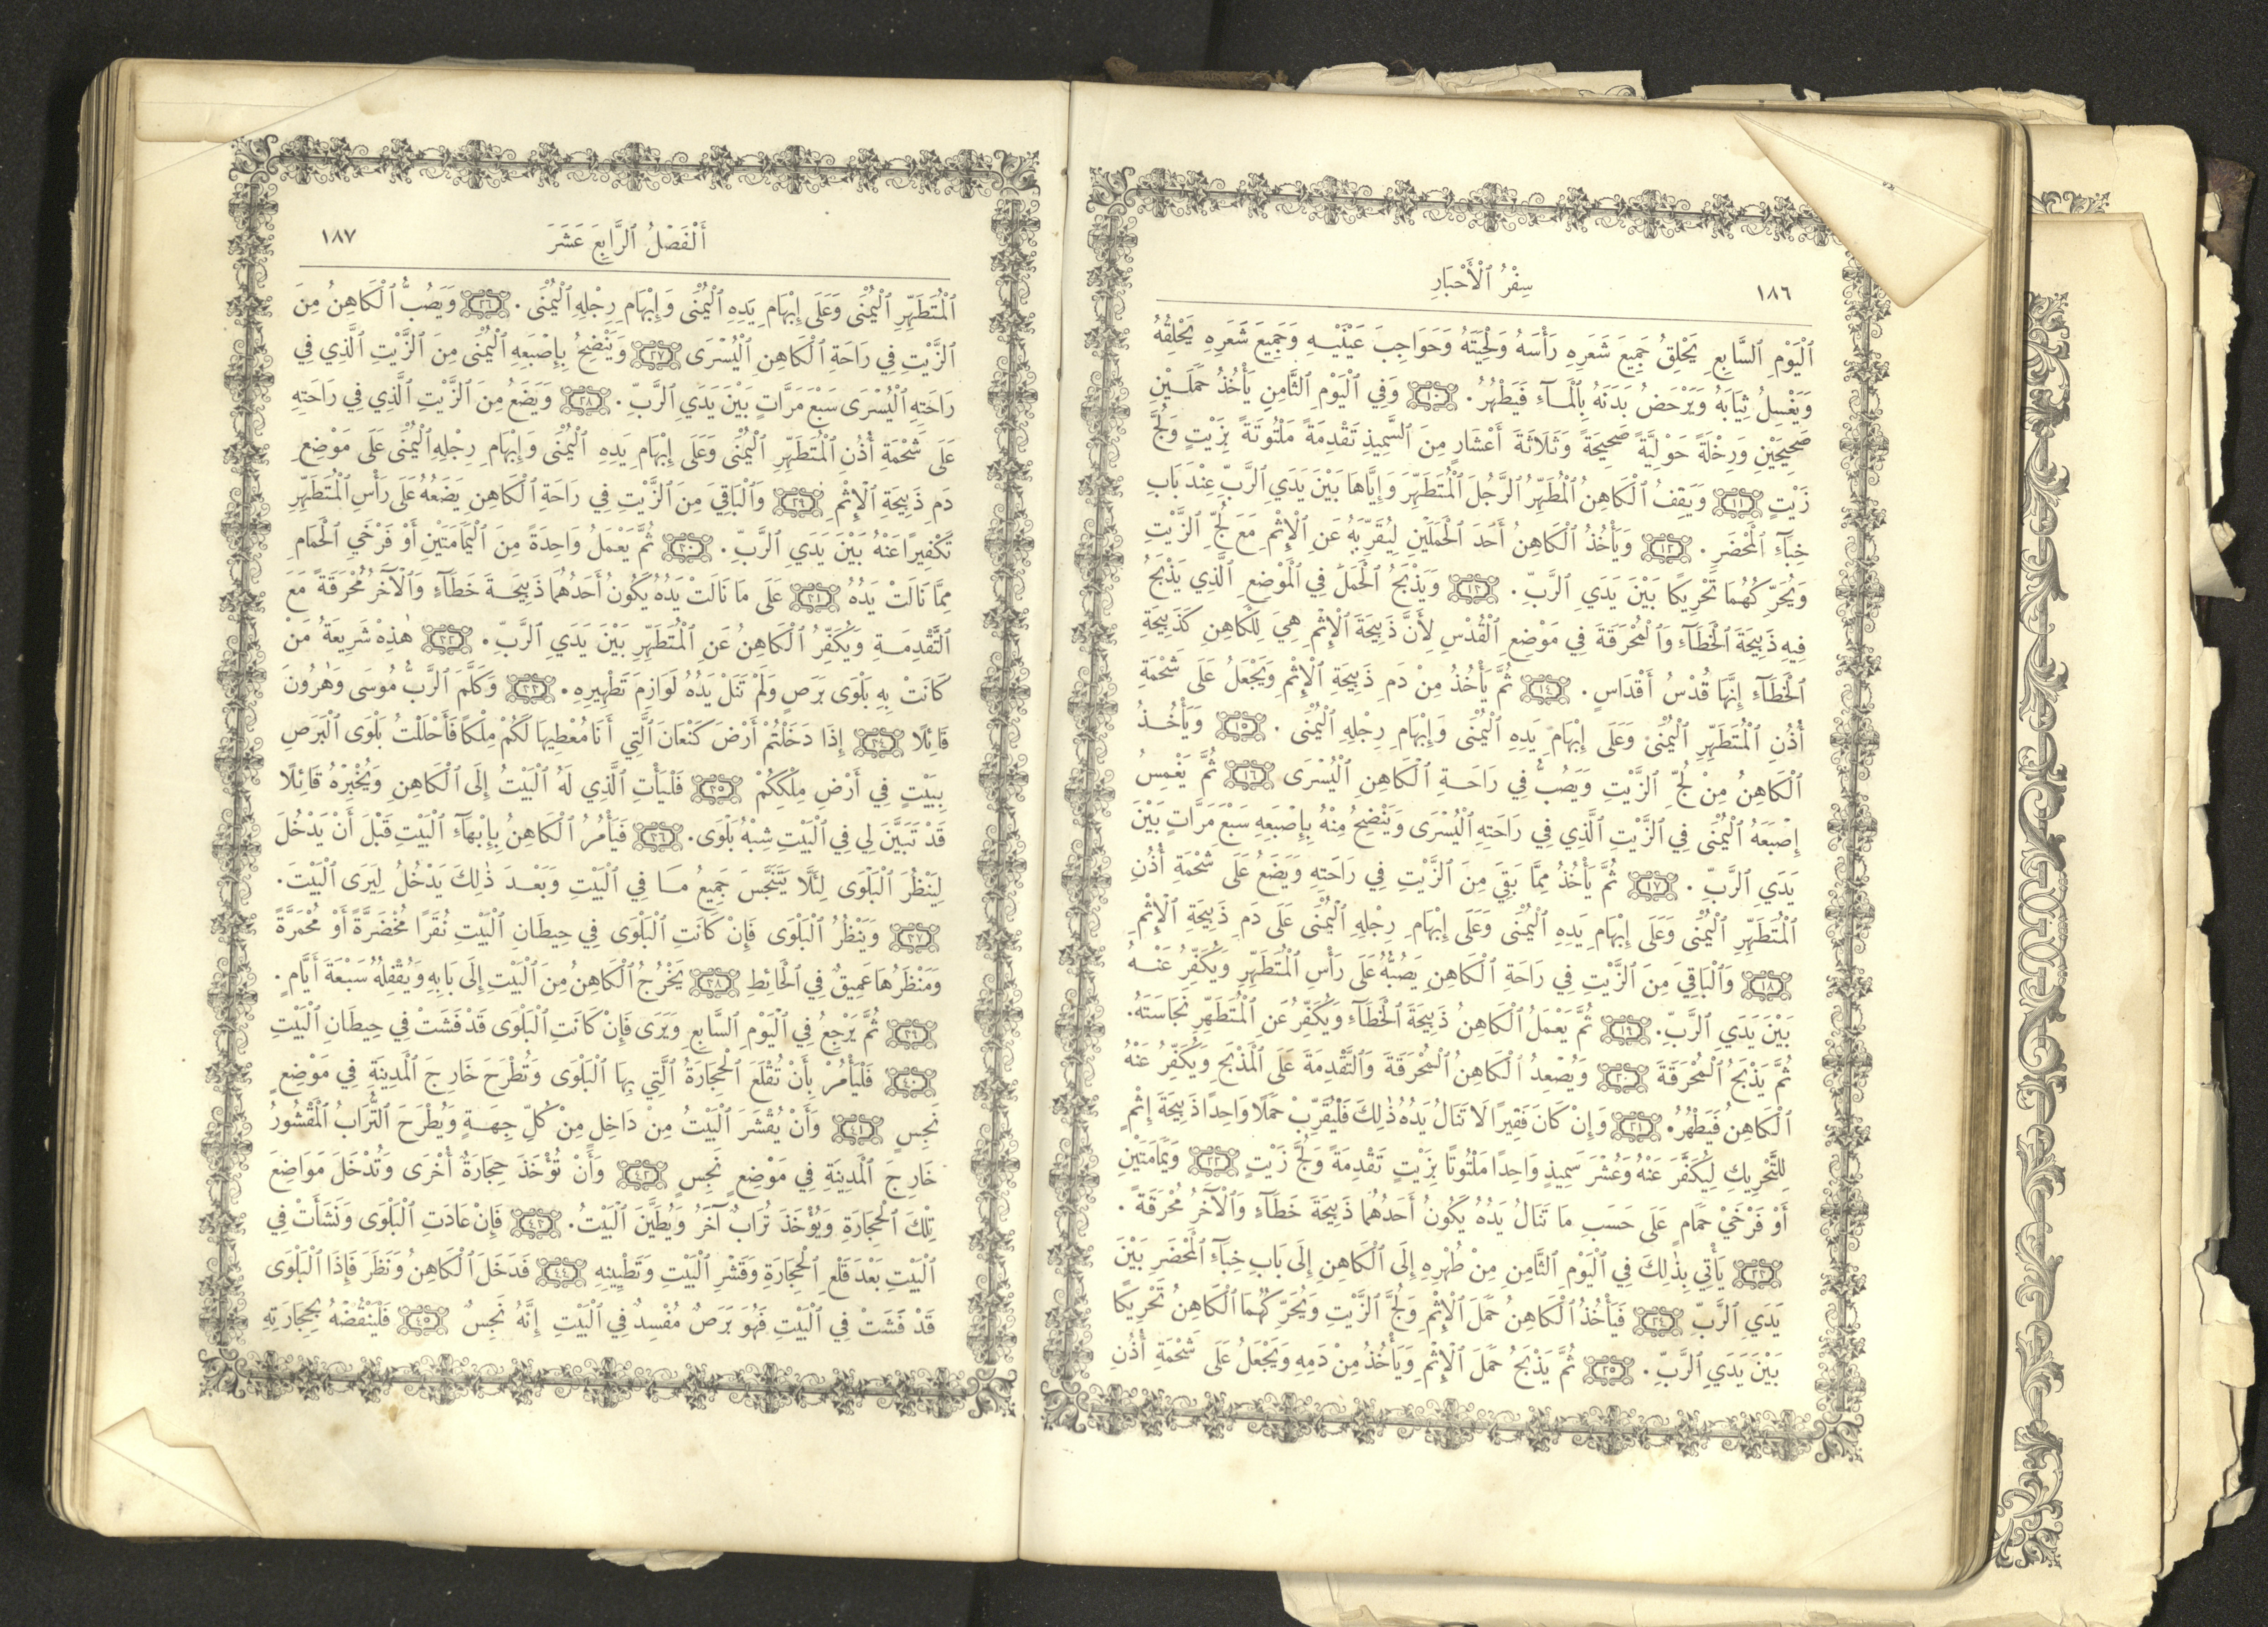 ١٨٦ سِفْرُ ٱلْأَحْبَارِ
ٱلْيَوْمِ ٱلسَّابِعِ يَحْلِقُ جَمِيعَ شَعَرِهِ رَأْسَهُ وَلِحْيَتَهُ وَحَوَاجِبَ عَيْنَيْهِ وَجَمِيعَ شَعَرِهِ يَحْلِقُهُ
وَيَغْسِلُ ثِيَابَهُ وَيَرْحَضُ بَدَنَهُ بِٱلْمَآءِ فَيَطْهُرُ. ١٠ وَفِي ٱلْيَوْمِ ٱلثَّامِنِ يَأْخُذُ حَمَلَيْنِ
صَحِيحَيْنِ وَرِخْلَةً حَوْلِيَّةً صَحِيحَةً وَثَلَاثَةَ أَعْشَارٍ مِنَ ٱلسَّمِيذِ تَقْدِمَةً مَلْتُوتَةً بِزَيْتٍ وَلُجَّ
زَيْتٍ ١١ وَيَقِفُ ٱلْكَاهِنُ ٱلْمُطَهِّرُ ٱلرَّجُلَ ٱلْمُتَطَهِّرَ وَإِيَّاهَا بَيْنَ يَدَيِ ٱلرَّبِّ عِنْدَ بَابِ
خِبَآءِ ٱلْمَحْضَرِ. ١٢ وَيَأْخُذُ ٱلْكَاهِنُ أَحَدَ ٱلْحَمَلَيْنِ لِيُقَرِّبَهُ عَنِ ٱلْإِثْمِ مَعَ لُجِّ ٱلزَّيْتِ
وَيُحَرِّكُهُمَا تَحْرِيكًا بَيْنَ يَدَيِ ٱلرَّبِّ. ١٣ وَيَذْبَحُ ٱلْحَمَلَ فِي ٱلْمَوْضِعِ ٱلَّذِي يَذْبَحُ
فِيهِ ذَبِيحَةَ ٱلْخَطَآءِ وَٱلْمُحْرَقَةَ فِي مَوْضِعِ ٱلْقُدْسِ لِأَنَّ ذَبِيحَةَ ٱلْإِثْمِ هِيَ لِلْكَاهِنِ كَذَبِيحَةِ
ٱلْخَطَآءِ إِنَّهَا قُدْسُ أَقْدَاسٍ. ١٤ ثُمَّ يَأْخُذُ مِنْ دَمِ ذَبِيحَةِ ٱلْإِثْمِ وَيَجْعَلُ عَلَى شَحْمَةِ
أُذُنِ ٱلْمُتَطَهِّرِ ٱلْيُمْنَى وَعَلَى إِبْهَامِ يَدِهِ ٱلْيُمْنَى وَإِبْهَامِ رِجْلِهِ ٱلْيُمْنَى. ١٥ وَيَأْخُذُ
ٱلْكَاهِنُ مِنْ لُجِّ ٱلزَّيْتِ وَيَصُبُّ فِي رَاحَةِ ٱلْكَاهِنِ ٱلْيُسْرَى ١٦ ثُمَّ يَغْمِسُ
إِصْبَعَهُ ٱلْيُمْنَى فِي ٱلزَّيْتِ ٱلَّذِي فِي رَاحَتِهِ ٱلْيُسْرَى وَيَنْضِحُ مِنْهُ بِإِصْبَعِهِ سَبْعَ مَرَّاتٍ بَيْنَ
يَدَيِ ٱلرَّبِّ. ١٧ ثُمَّ يَأْخُذُ مِمَّا بَقِيَ مِنَ ٱلزَّيْتِ فِي رَاحَتِهِ وَيَضَعُ عَلَى شَحْمَةِ أُذُنِ
ٱلْمُتَطَهِّرِ ٱلْيُمْنَى وَعَلَى إِبْهَامِ يَدِهِ ٱلْيُمْنَى وَعَلَى إِبْهَامِ رِجْلِهِ ٱلْيُمْنَى عَلَى دَمِ ذَبِيحَةِ ٱلْإِثْمِ
١٨ وَٱلْبَاقِيَ مِنَ ٱلزَّيْتِ فِي رَاحَةِ ٱلْكَاهِنِ يَصُبُّهُ عَلَى رَأْسِ ٱلْمُتَطَهِّرِ وَيُكَفِّرُ عَنْهُ
بَيْنَ يَدَيِ ٱلرَّبِّ. ١٩ ثُمَّ يَعْمَلُ ٱلْكَاهِنُ ذَبِيحَةَ ٱلْخَطَآءِ وَيُكَفِّرُ عَنِ ٱلْمُتَطَهِّرِ نَجَاسَتَهُ.
ثُمَّ يَذْبَحُ ٱلْمُحْرَقَةَ ٢٠ وَيُصْعِدُ ٱلْكَاهِنُ ٱلْمُحْرَقَةَ وَٱلتَّقْدِمَةَ عَلَى ٱلْمَذْبَحِ وَيُكَفِّرُ عَنْهُ
ٱلْكَاهِنُ فَيَطْهُرُ. ٢١ وَإِنْ كَانَ فَقِيرًا لَا تَنَالُ يَدُهُ ذٰلِكَ فَلْيُقَرِّبْ حَمَلًا وَاحِدًا ذَبِيحَةَ إِثْمٍ
لِلتَّحْرِيكِ لِيُكَفَّرَ عَنْهُ وَعُشْرَ سَمِيذٍ وَاحِدًا مَلْتُوتًا بِزَيْتٍ تَقْدِمَةً وَلُجَّ زَيْتٍ ٢٢ وَيَمَامَتَيْنِ
أَوْ فَرْخَيْ حَمَامٍ عَلَى حَسَبِ مَا تَنَالُ يَدُهُ يَكُونُ أَحَدُهُمَا ذَبِيحَةَ خَطَآءٍ وَٱلْآخَرُ مُحْرَقَةً.
٢٣ يَأْتِي بِذٰلِكَ فِي ٱلْيَوْمِ ٱلثَّامِنِ مِنْ طُهْرِهِ إِلَى ٱلْكَاهِنِ إِلَى بَابِ خِبَآءِ ٱلْمَحْضَرِ بَيْنَ
يَدَيِ ٱلرَّبِّ ٢٤ فَيَأْخُذُ ٱلْكَاهِنُ حَمَلَ ٱلْإِثْمِ وَلُجَّ ٱلزَّيْتِ وَيُحَرِّكُهُمَا ٱلْكَاهِنُ تَحْرِيكًا
بَيْنَ يَدَيِ ٱلرَّبِّ. ٢٥ ثُمَّ يَذْبَحُ حَمَلَ ٱلْإِثْمِ وَيَأْخُذُ مِنْ دَمِهِ وَيَجْعَلُ عَلَى شَحْمَةِ أُذُنِ
أَلْفَصْلُ ٱلرَّابِعَ عَشَرَ ١٨٧
ٱلْمُتَطَهِّرِ ٱلْيُمْنَى وَعَلَى إِبْهَامِ يَدِهِ ٱلْيُمْنَى وَإِبْهَامِ رِجْلِهِ ٱلْيُمْنَى. ٢٦ وَيَصُبُّ ٱلْكَاهِنُ مِنَ
ٱلزَّيْتِ فِي رَاحَةِ ٱلْكَاهِنِ ٱلْيُسْرَى ٢٧ وَيَنْضِحُ بِإِصْبَعِهِ ٱلْيُمْنَى مِنَ ٱلزَّيْتِ ٱلَّذِي فِي
رَاحَتِهِ ٱلْيُسْرَى سَبْعَ مَرَّاتٍ بَيْنَ يَدَيِ ٱلرَّبِّ. ٢٨ وَيَضَعُ مِنَ ٱلزَّيْتِ ٱلَّذِي فِي رَاحَتِهِ
عَلَى شَحْمَةِ أُذُنِ ٱلْمُتَطَهِّرِ ٱلْيُمْنَى وَعَلَى إِبْهَامِ يَدِهِ ٱلْيُمْنَى وَإِبْهَامِ رِجْلِهِ ٱلْيُمْنَى عَلَى مَوْضِعِ
دَمِ ذَبِيحَةِ ٱلْإِثْمِ ٢٩ وَٱلْبَاقِيَ مِنَ ٱلزَّيْتِ فِي رَاحَةِ ٱلْكَاهِنِ يَضَعُهُ عَلَى رَأْسِ ٱلْمُتَطَهِّرِ
تَكْفِيرًا عَنْهُ بَيْنَ يَدَيِ ٱلرَّبِّ. ٣٠ ثُمَّ يَعْمَلُ وَاحِدَةً مِنَ ٱلْيَمَامَتَيْنِ أَوْ فَرْخَيِ ٱلْحَمَامِ
مِمَّا نَالَتْ يَدُهُ ٣١ عَلَى مَا نَالَتْ يَدُهُ يَكُونُ أَحَدُهُمَا ذَبِيحَةَ خَطَآءٍ وَٱلْآخَرُ مُحْرَقَةً مَعَ
ٱلتَّقْدِمَةِ وَيُكَفِّرُ ٱلْكَاهِنُ عَنِ ٱلْمُتَطَهِّرِ بَيْنَ يَدَيِ ٱلرَّبِّ. ٣٢ هٰذِهِ شَرِيعَةُ مَنْ
كَانَتْ بِهِ بَلْوَى بَرَصٍ وَلَمْ تَنَلْ يَدُهُ لَوَازِمَ تَطْهِيرِهِ. ٣٣ وَكَلَّمَ ٱلرَّبُّ مُوسَى وَهٰرُونَ
قَائِلًا ٣٤ إِذَا دَخَلْتُمْ أَرْضَ كَنْعَانَ ٱلَّتِي أَنَا مُعْطِيهَا لَكُمْ مِلْكًا فَأَحْلَلْتُ بَلْوَى ٱلْبَرَصِ
بِبَيْتٍ فِي أَرْضِ مِلْكِكُمْ ٣٥ فَلْيَأْتِ ٱلَّذِي لَهُ ٱلْبَيْتُ إِلَى ٱلْكَاهِنِ وَيُخْبِرْهُ قَائِلًا
قَدْ تَبَيَّنَ لِي فِي ٱلْبَيْتِ شِبْهُ بَلْوَى. ٣٦ فَيَأْمُرُ ٱلْكَاهِنُ بِإِبْهَآءِ ٱلْبَيْتِ قَبْلَ أَنْ يَدْخُلَ
لِيَنْظُرَ ٱلْبَلْوَى لِئَلَّا يَتَنَجَّسَ جَمِيعُ مَا فِي ٱلْبَيْتِ وَبَعْدَ ذٰلِكَ يَدْخُلُ لِيَرَى ٱلْبَيْتَ.
٣٧ وَيَنْظُرُ ٱلْبَلْوَى فَإِنْ كَانَتِ ٱلْبَلْوَى فِي حِيطَانِ ٱلْبَيْتِ نُقَرًا مُخْضَرَّةً أَوْ مُحْمَرَّةً
وَمَنْظَرُهَا عَمِيقٌ فِي ٱلْحَائِطِ ٣٨ يَخْرُجُ ٱلْكَاهِنُ مِنَ ٱلْبَيْتِ إِلَى بَابِهِ وَيُقْفِلُهُ سَبْعَةَ أَيَّامٍ.
٣٩ ثُمَّ يَرْجِعُ فِي ٱلْيَوْمِ ٱلسَّابِعِ وَيَرَى فَإِنْ كَانَتِ ٱلْبَلْوَى قَدْ فَشَتْ فِي حِيطَانِ ٱلْبَيْتِ
٤٠ فَلْيَأْمُرْ بِأَنْ تُقْلَعَ ٱلْحِجَارَةُ ٱلَّتِي بِهَا ٱلْبَلْوَى وَتُطْرَحَ خَارِجَ ٱلْمَدِينَةِ فِي مَوْضِعٍ
نَجِسٍ ٤١ وَأَنْ يُقْشَرَ ٱلْبَيْتُ مِنْ دَاخِلٍ مِنْ كُلِّ جِهَةٍ وَيُطْرَحَ ٱلتُّرَابُ ٱلْمَقْشُورُ
خَارِجَ ٱلْمَدِينَةِ فِي مَوْضِعٍ نَجِسٍ ٤٢ وَأَنْ تُؤْخَذَ حِجَارَةٌ أُخْرَى وَتُدْخَلَ مَوَاضِعَ
تِلْكَ ٱلْحِجَارَةِ وَيُؤْخَذَ تُرَابٌ آخَرُ وَيُطَيَّنَ ٱلْبَيْتُ. ٤٣ فَإِنْ عَادَتِ ٱلْبَلْوَى وَنَشَأَتْ فِي
ٱلْبَيْتِ بَعْدَ قَلْعِ ٱلْحِجَارَةِ وَقَشْرِ ٱلْبَيْتِ وَتَطْيِينِهِ ٤٤ فَدَخَلَ ٱلْكَاهِنُ وَنَظَرَ فَإِذَا ٱلْبَلْوَى
قَدْ فَشَتْ فِي ٱلْبَيْتِ فَهُوَ بَرَصٌ مُفْسِدٌ فِي ٱلْبَيْتِ إِنَّهُ نَجِسٌ ٤٥ فَلْيَنْقُضْهُ بِحِجَارَتِهِ